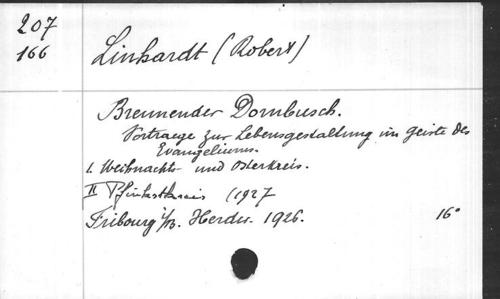 207
166
Linhardt (Robert)
Brennender Dornbusch.
Vortraege zur Lebensgestaltung im Geiste des
Evangeliums.
I. Weihnachts- und Osterkreis.
II Pfingstkreis (1927
Fribourg i/B. Herder. 1926. 16°